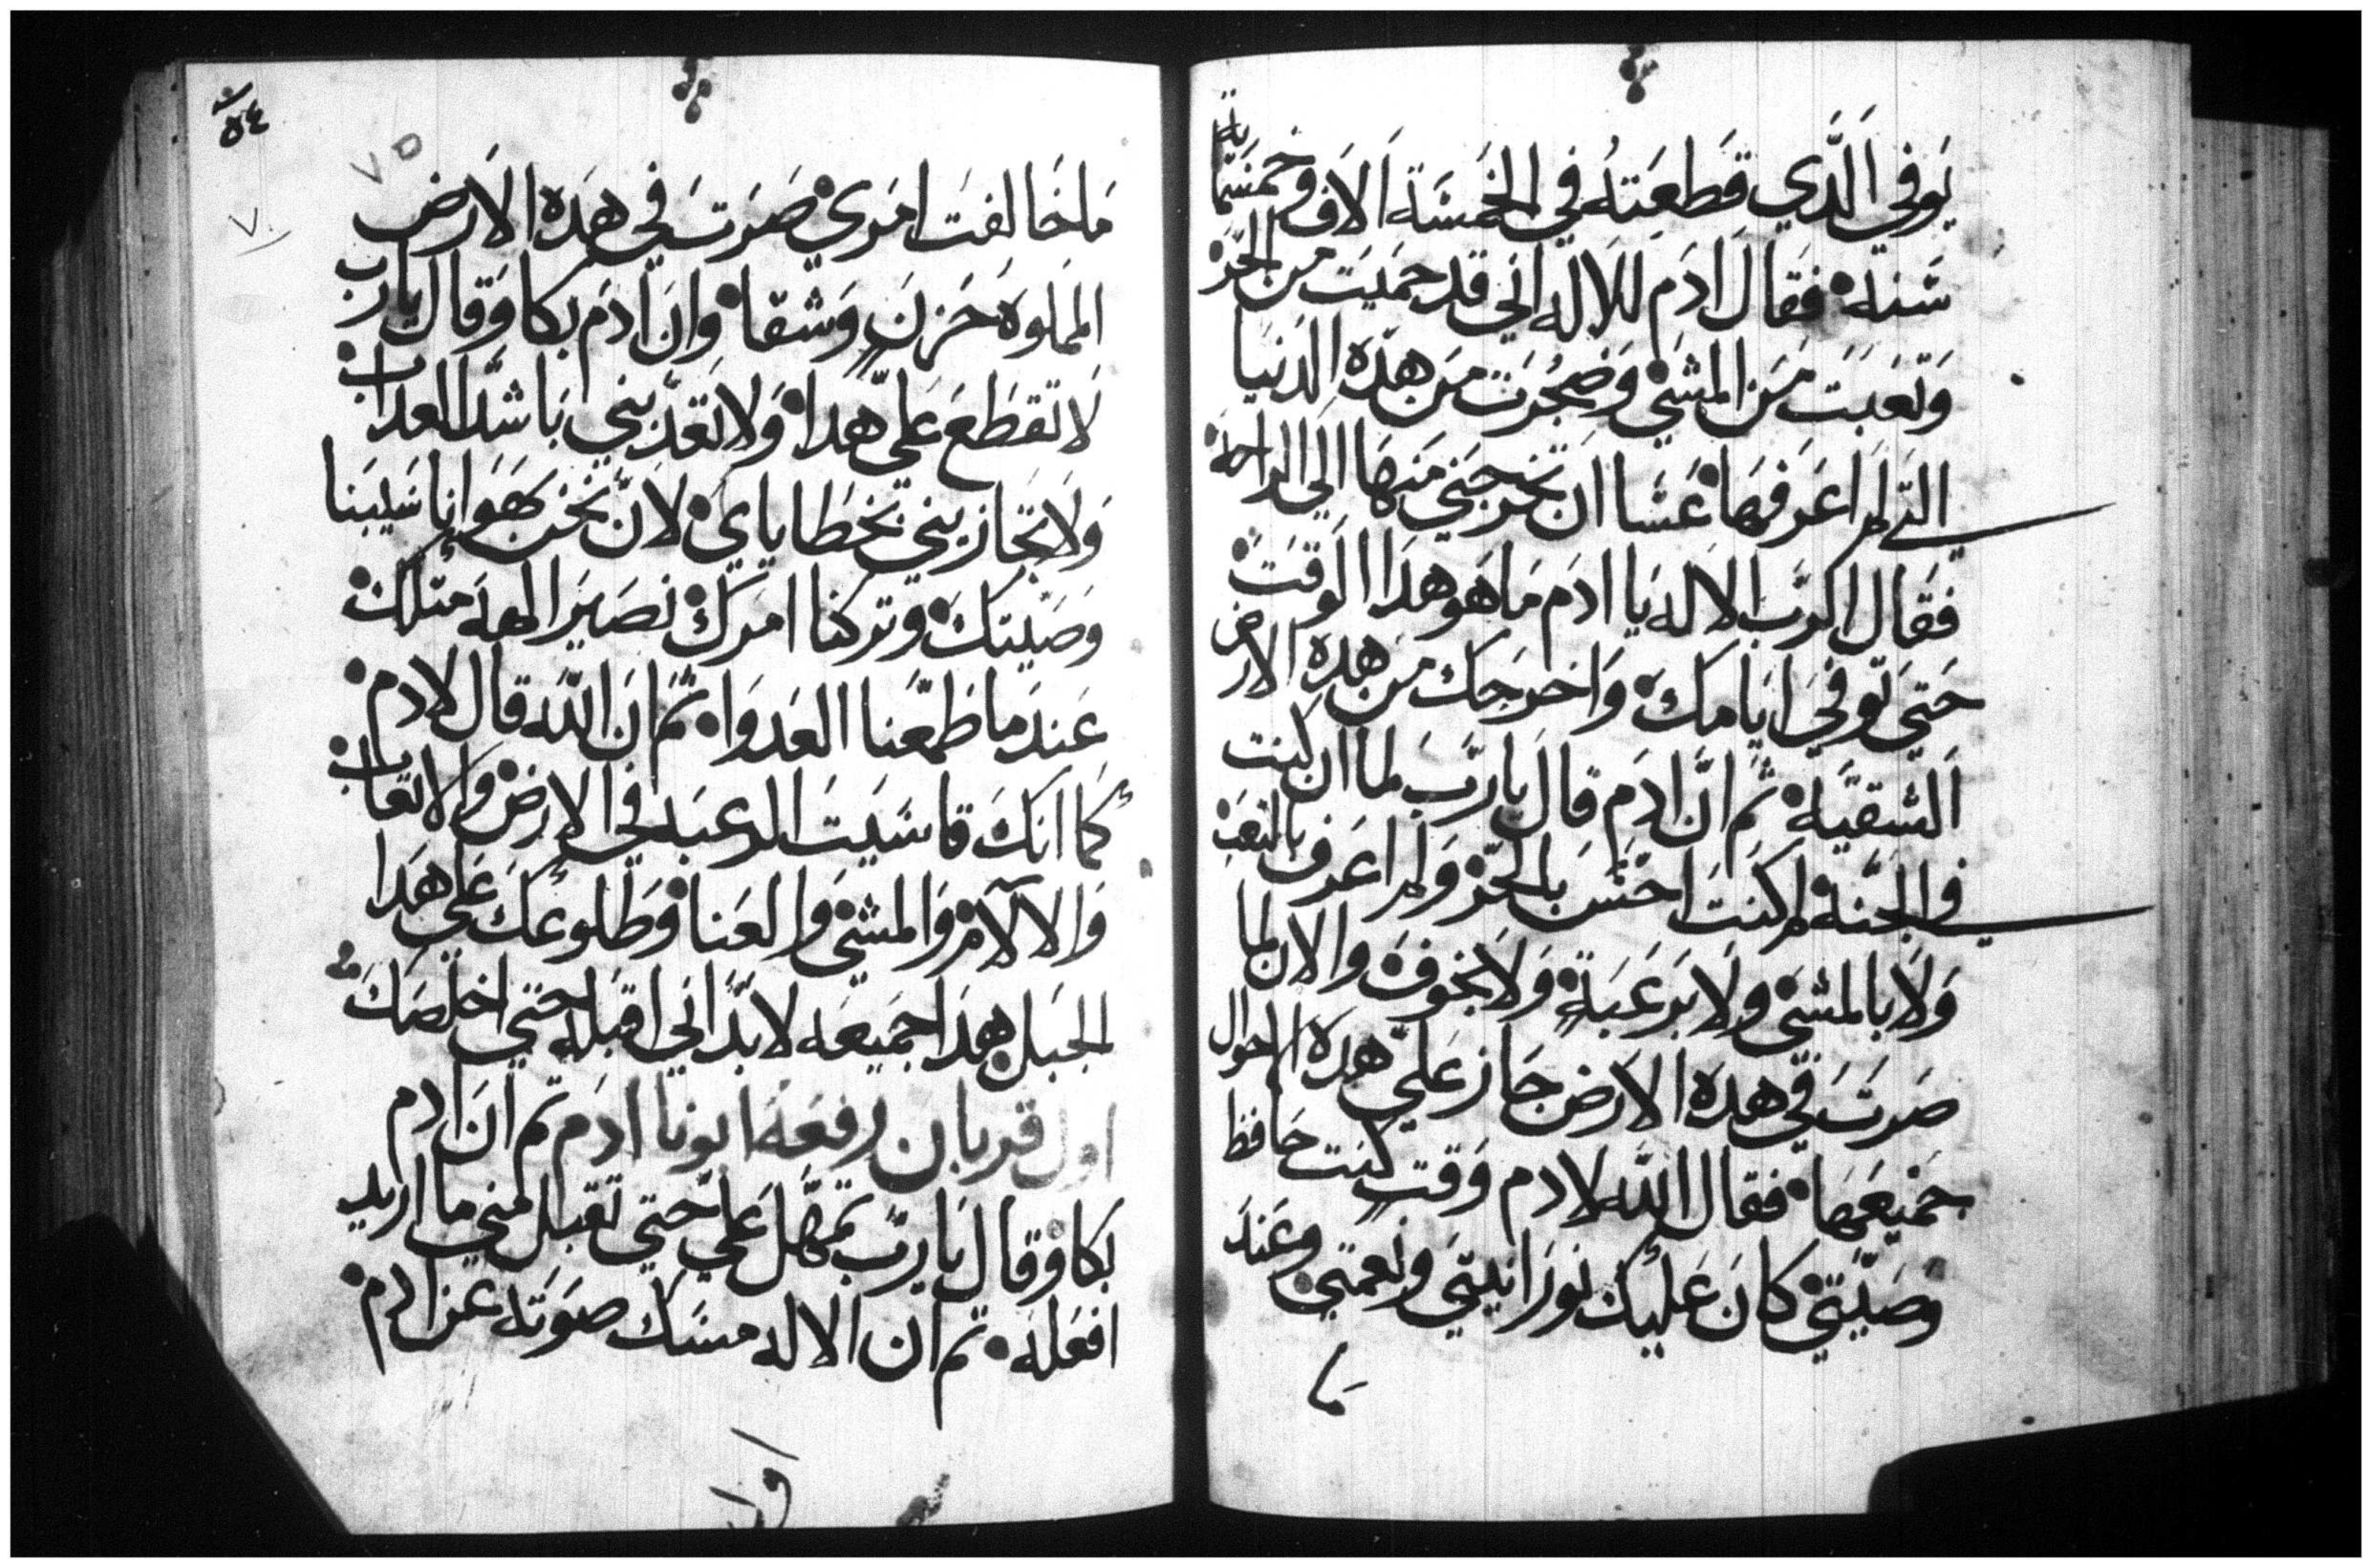 يَوفي اَلَّدي قَطَعَتهُ في الخمَسَة اَلاَف وخمَسَماية
سَنة فقال اَدَم للالَه اني قد حمَيَت من الحَر
وَتعَبَت مَن المشَي وَضجُرَت مَن هَدَه الدَنيَا
التي لم اعَرَفهَا عَسَا ان تخرجَني مَنهَا اَلي الراحة
فقال الرَب الالَه يَا ادَم مَا هَو هَدَا الوَقتَ
حَتي تَوفي ايَامَكَ وَاخرَجَك مَن هَدِه الارض
اَلشقيَة ثم انَّ ادَم قال يَا رَب لما ان كنت
في الجنَة لم كنتَ احَسَ بالحَر وَلم اعَرف بالتعَب
وَلاَ بالمشَي ولاَ برَعَبَة وَلاَ بخوفَ والان لما
صَرتَ في هدَه الاَرض جَاز عَلي هَدَه الاحوال
جمَيعَهَا فقال اللَه لادم وَقت كنت حَافظ
وَصَيَتي كانَ عَليك نورَانيتي ونعَمتي وعَندَ
مَا
٥٤
٧٥
٧
مَا خَالفتَ امَري صَرَت في هَدَه الاَرض
المملوَه حَزنَ وَشقا وانَ ادَم بكا وَقال يارب
لاَ تقطَعَ عَلي هَدا وَلا تعَدَبني بَاشَد العَداب
وَلاَ تجَازيني بخطَاياي لانَ نحَن بهَوَانا نَسيَنا
وَصَيتكَ وتركنا امَرَك نصَيرَ الهة متلك
عَندَ مَا طمّعَنا العَدَوَا ثمَ انَ اللَه قال لادم
كمَا انكَ قاسَيَتَ الرعبَه في الارض والاتعَاب
وَالالاَم وَالمشي والعَنا وَطلوعَكَ عَلي هَدا
الجَبل هَدَا جمَيعَه لابدَ اني اقبَله حتي اخلصَكَ منه
اول قربان رفعَهَ ابونا ادَم ثم انَ ادم
بَكا وقال يَا ربَ تمهَل عَلي حتي تقبل مني ما اريد
افعَلهَ ثم ان الالَه مسَك صوَتَه عَن ادم